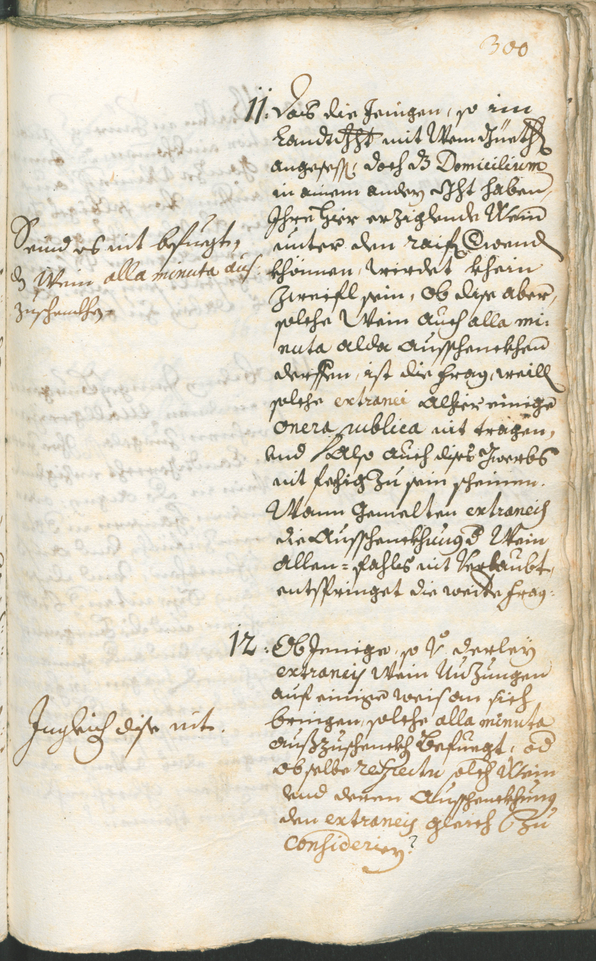 300
11. Das die Jenigen, so im
Landtgcht mit Wein Güeth
angesess, doch dz Domicilium
in einem andern Gcht haben,
Ihre hier erziglende Wein
unter den raif wend
khönnen, wirdet khein
Zweifl sein, Ob dise aber,
solche Wein auch alla mi-
nuta alda Ausschenckhen
derffen, ist die frag, weill
solche extranei Alhier einige
onera publica nit tragen,
und Also auch dises gwerbs
nit fehig zu sein scheinen.
Wann Gemelten extraneis
die Ausschenckhung d Wein
Allen-fahls nit Verlaubt,
entspringet die weite frag:
Seind es nit befuegt,
dz Wein alla minuta aus-
zuschenckhen
12. Ob Jenige, so derley
extraneis Wein Nuzungen
auf einige weis an sich
bringen, solche alla minuta
auszuschenckh befuegt, od
obselbe respectu solch Wein
und deren Ausschenckhung
den extraneis gleich zu
considerirn?
Ingleich dise nit.